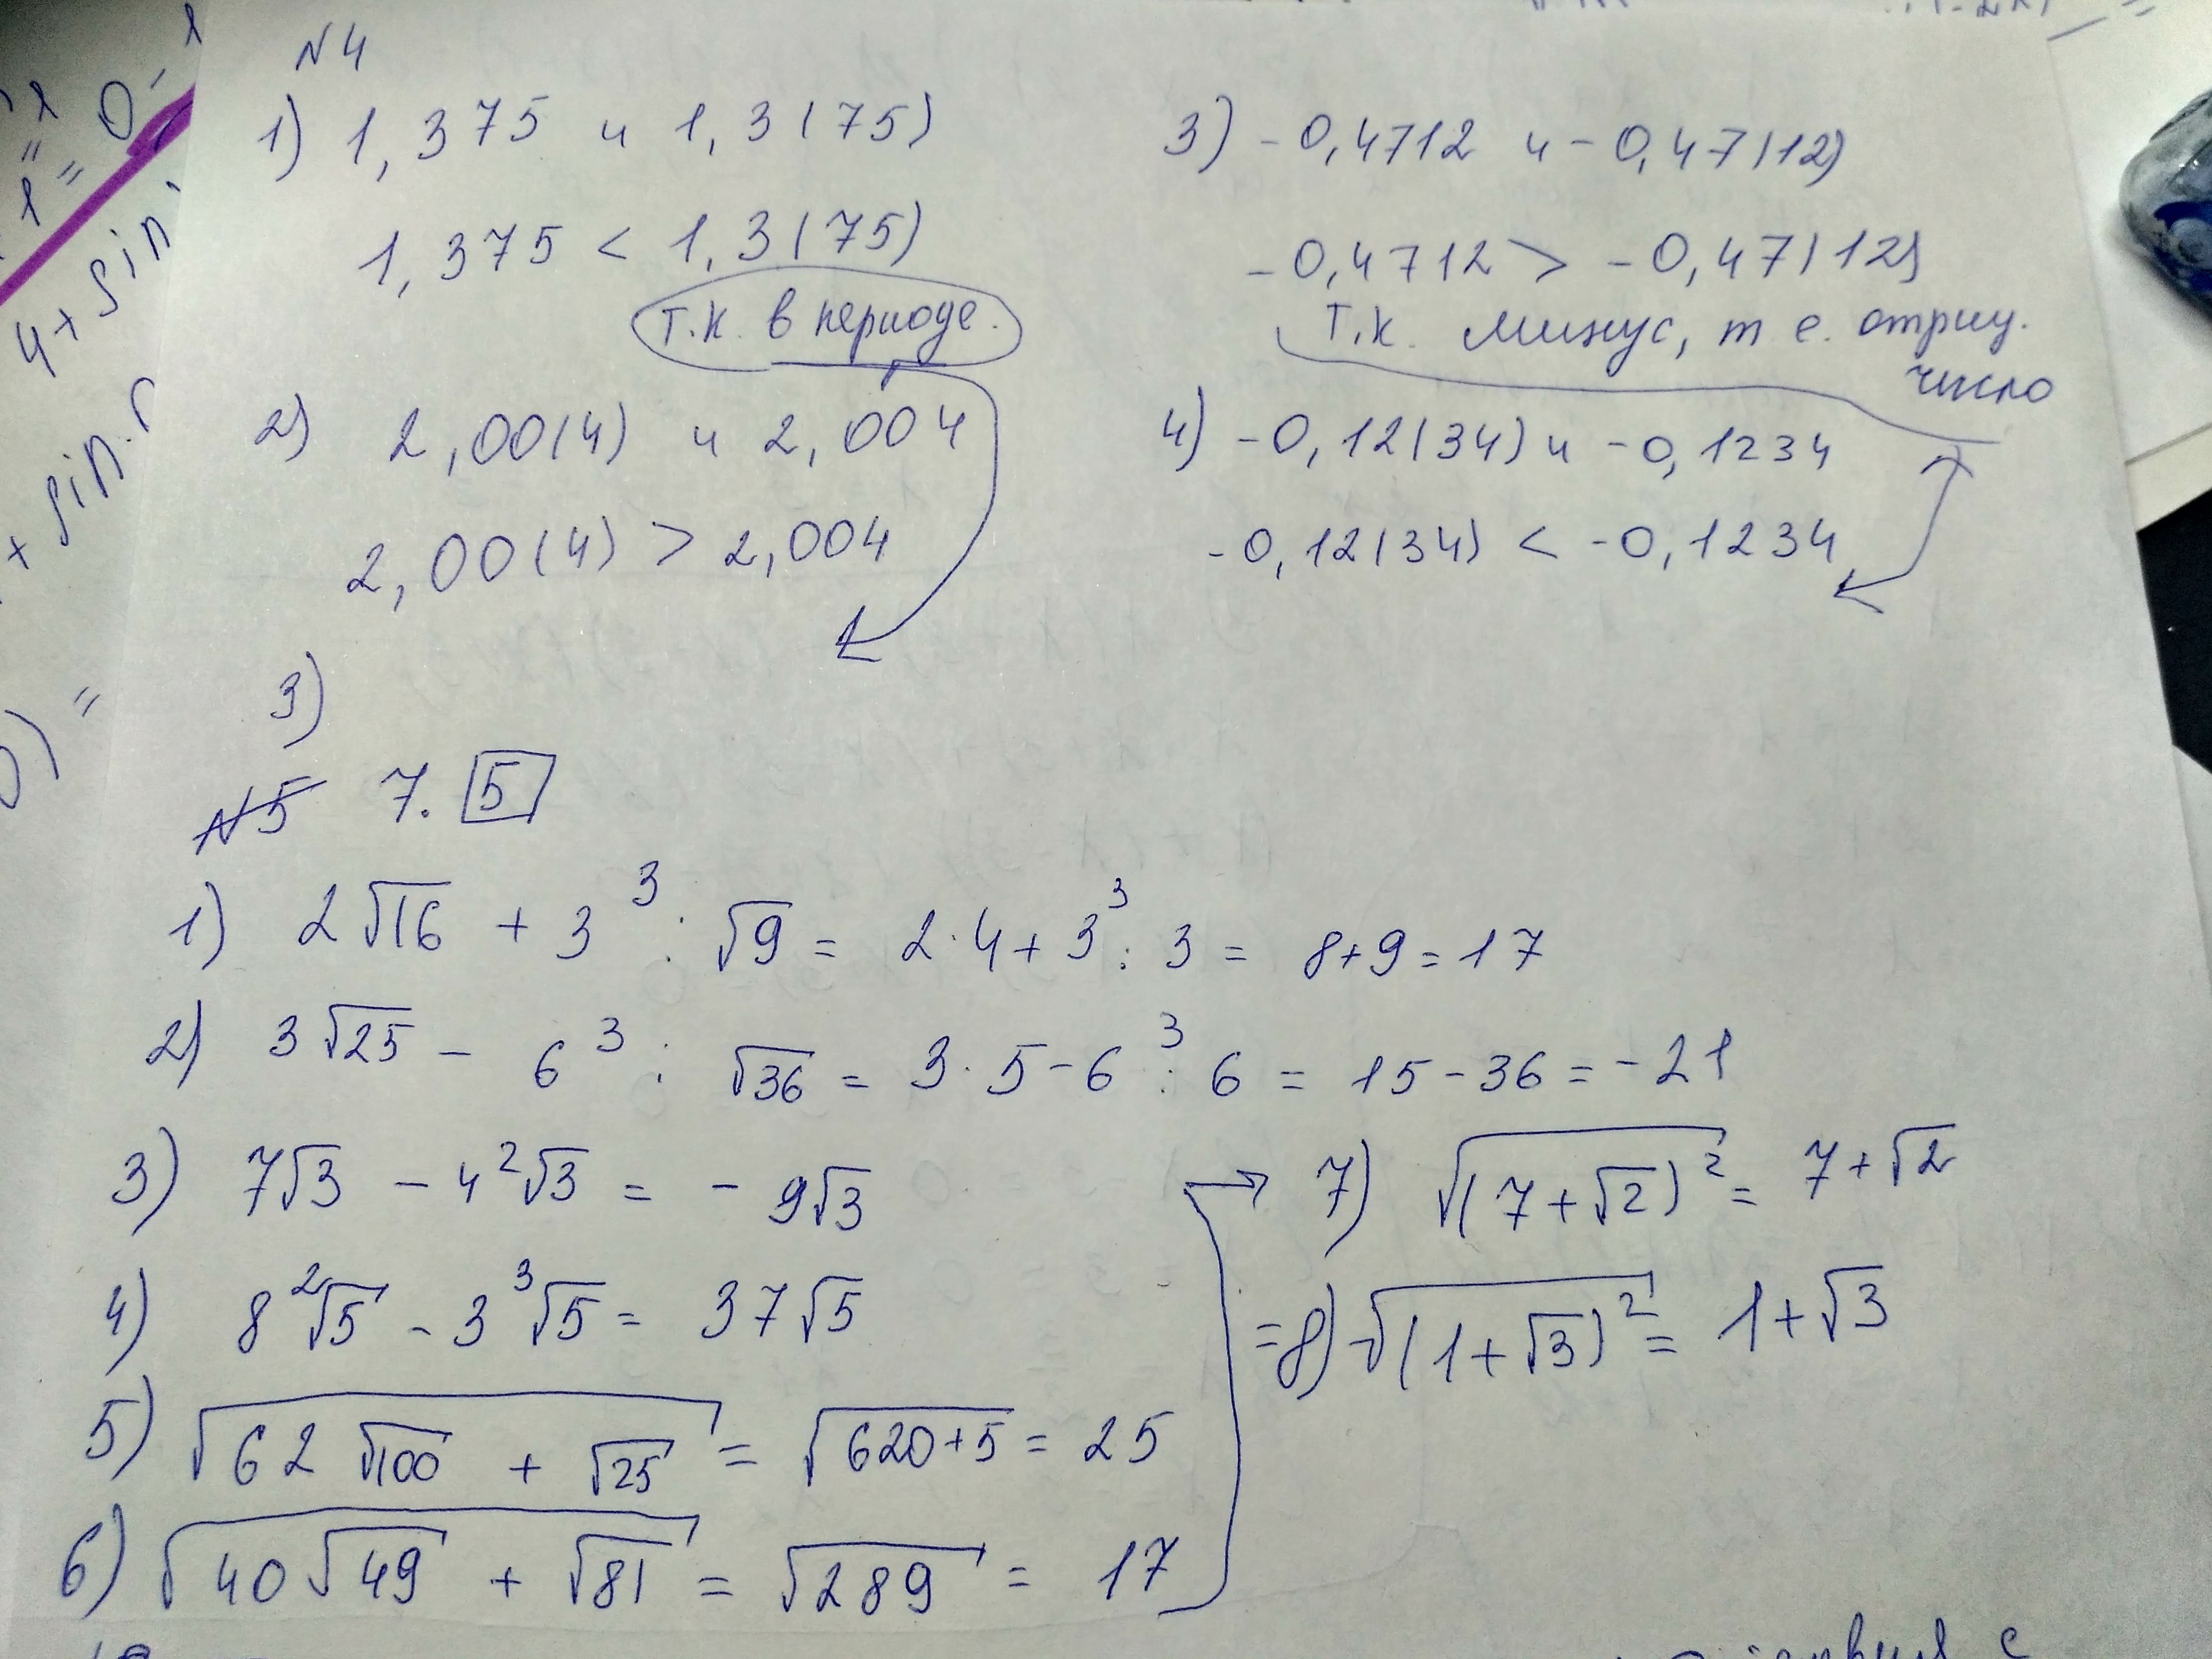 N4
1) 1,375 и 1,3(75)
1,375 < 1,3(75)
т.к. в периоде.
2) 2,00(4) и 2,004
2,00(4) > 2,004
3)
3) -0,4712 и -0,47(12)
-0,4712 > -0,47(12)
т.к. минус, т е. отриц.
число
4) -0,12(34) и -0,1234
-0,12(34) < -0,1234
N5 7. 5
1) 2√16 + 3³ : √9 = 2·4 + 3³ : 3 = 8+9 = 17
2) 3√25 - 6³ : √36 = 3·5 - 6³ : 6 = 15 - 36 = -21
3) 7√3 - 4²√3 = - 9√3
4) 8²√5 - 3³√5 = 37√5
5) √(62√100 + √25) = √(620+5) = 25
6) √(40√49 + √81) = √289 = 17
→ 7) √((7+√2)²) = 7+√2
=8) √((1+√3)²) = 1+√3
4+ sin
+ sin.
) =